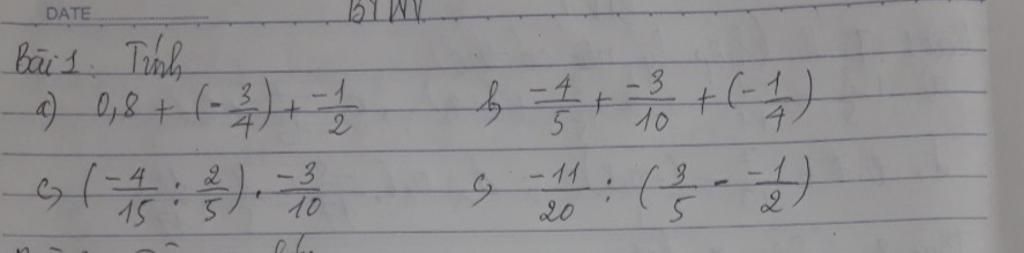 DATE
BTVN
Bài 1: Tính
a) 0,8 + (-3/4) + -1/2 b) -4/5 + -3/10 + (-1/4)
c) (-4/15 : 2/5) . -3/10 c) -11/20 : (3/5 - -1/2)